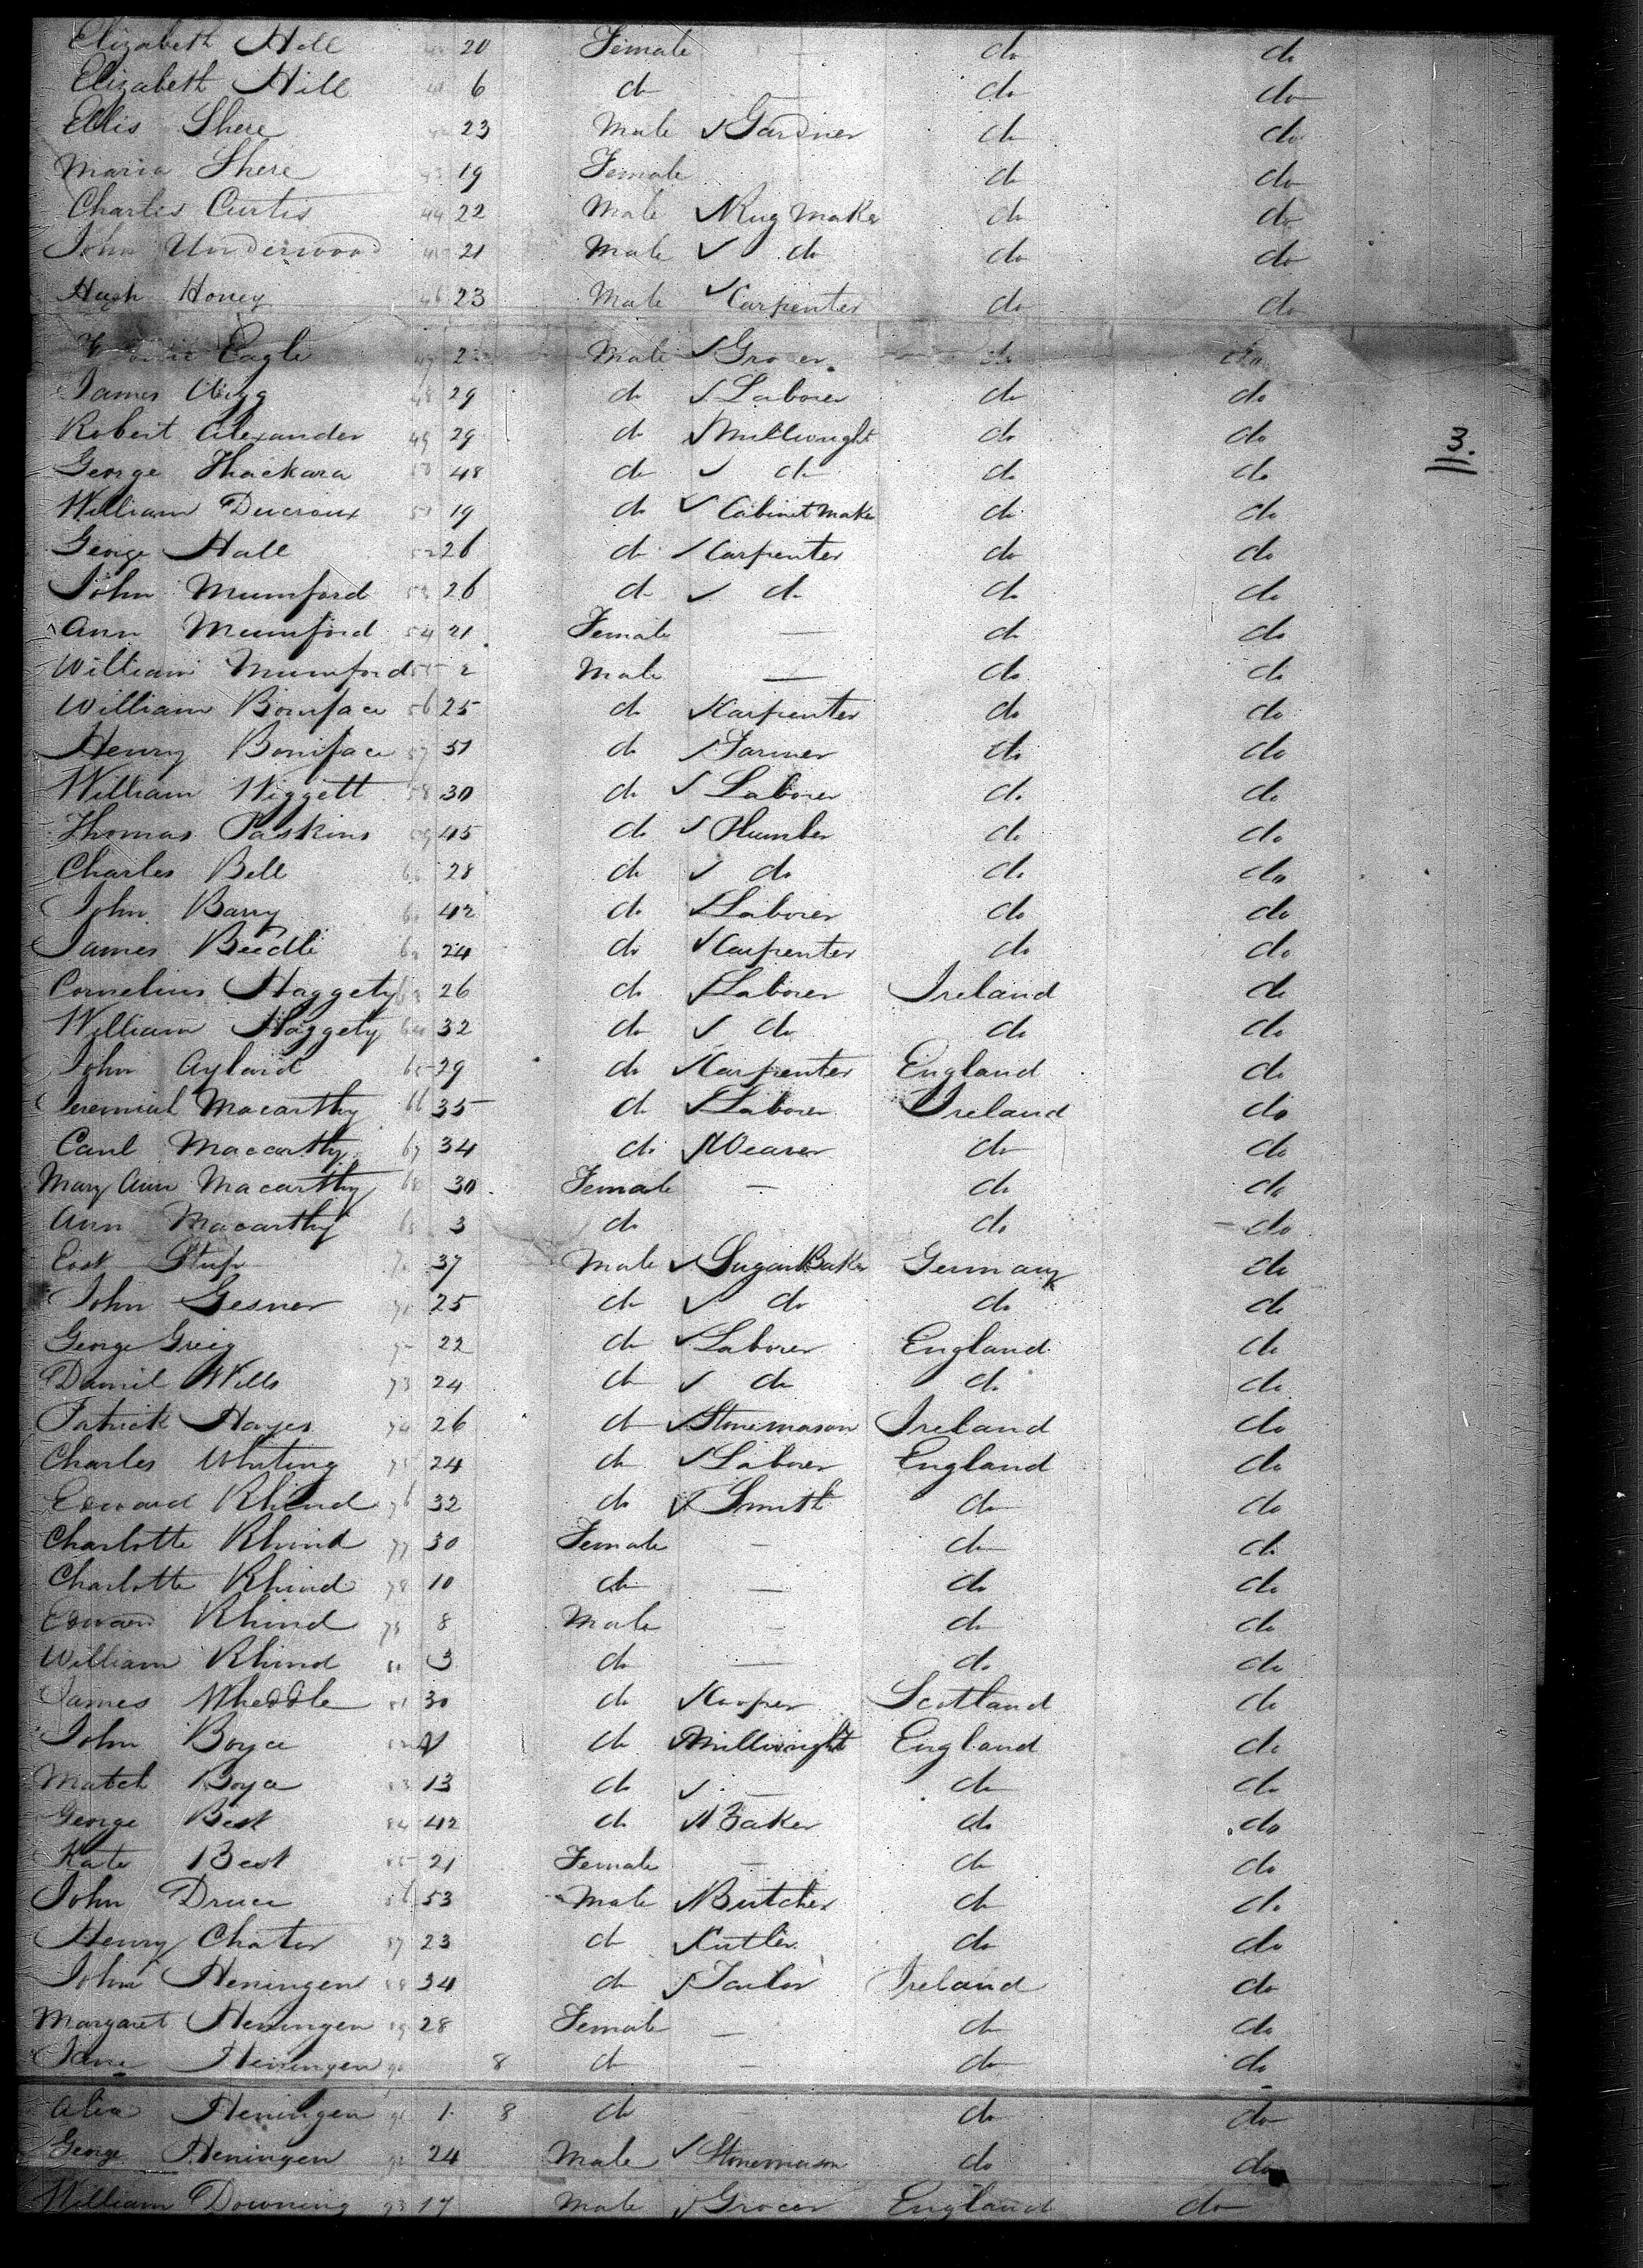 Elizabeth Hill 20 Female — do do
Elizabeth Hill 41 6 do — do do
Ellis Shere 42 23 Male ✓ Gardner do do
Maria Shere 43 19 Female do do
Charles Curtis 44 22 Male ✓ Rug Maker do do
John Underwood 45 21 Male ✓ do do do
Hugh Honey 46 23 Male ✓ Carpenter do do
Eagle 47 2 Male ✓ Grocer do do
James 48 29 do ✓ Laborer do do
Robert Alexander 49 29 do ✓ Millwright do do
3.
George Thackara 50 48 do ✓ do do do
William Ducroux 51 19 do ✓ Cabinet Maker do do
George Hall 52 26 do ✓ Carpenter do do
John Mumford 53 26 do ✓ do do do
Ann Mumford 54 21 Female — do do
William Mumford 55 2 Male — do do
William Boniface 56 25 do ✓ Carpenter do do
Henry Boniface 57 51 do ✓ Farmer do do
William Wiggett 58 30 do ✓ Laborer do do
Thomas Paskins 59 45 do ✓ Plumber do do
Charles Bell 60 28 do ✓ do do do
John Barry 61 42 do ✓ Laborer do do
James Beedle 62 24 do ✓ Carpenter do do
Cornelius Haggety 63 26 do ✓ Laborer Ireland do
William Haggety 64 32 do ✓ do do do
John Aylard 65 29 do ✓ Carpenter England do
Jeremiah Macarthy 66 35 do ✓ Laborer Ireland do
Macarthy 67 34 do ✓ Weaver do do
Mary Ann Macarthy 68 30 Female — do do
Ann Macarthy 69 3 do do do
70 37 Male ✓ Sugar Baker Germany do
John Gesner 71 25 do ✓ do do do
George Greig 72 22 do ✓ Laborer England do
Daniel Wills 73 24 do ✓ do do do
Patrick Hayes 74 26 do ✓ Stonemason Ireland do
Charles Whiting 75 24 do ✓ Laborer England do
Edward Rhind 76 32 do ✓ Smith do do
Charlotte Rhind 77 30 Female — do do
Charlotte Rhind 78 10 do — do do
Edward Rhind 79 8 Male — do do
William Rhind 80 3 do — do do
James Wheddle 81 30 do ✓ Cooper Scotland do
John Boyce 82 do ✓ Millwright England do
Match Boyce 83 13 do ✓ — do do
George Best 84 42 do ✓ Baker do do
Kate Best 85 21 Female — do do
John Druce 86 53 Male ✓ Butcher do do
Henry Chater 87 23 do ✓ Cutler do do
John Heningen 88 34 do ✓ Tailor Ireland do
Margaret Heningen 89 28 Female — do do
Jane Heningen 90 8 do — do do
Heningen 91 1 8 do — do do
George Heningen 92 24 Male ✓ Stonemason do do
William Downing 93 17 Male ✓ Grocer England do